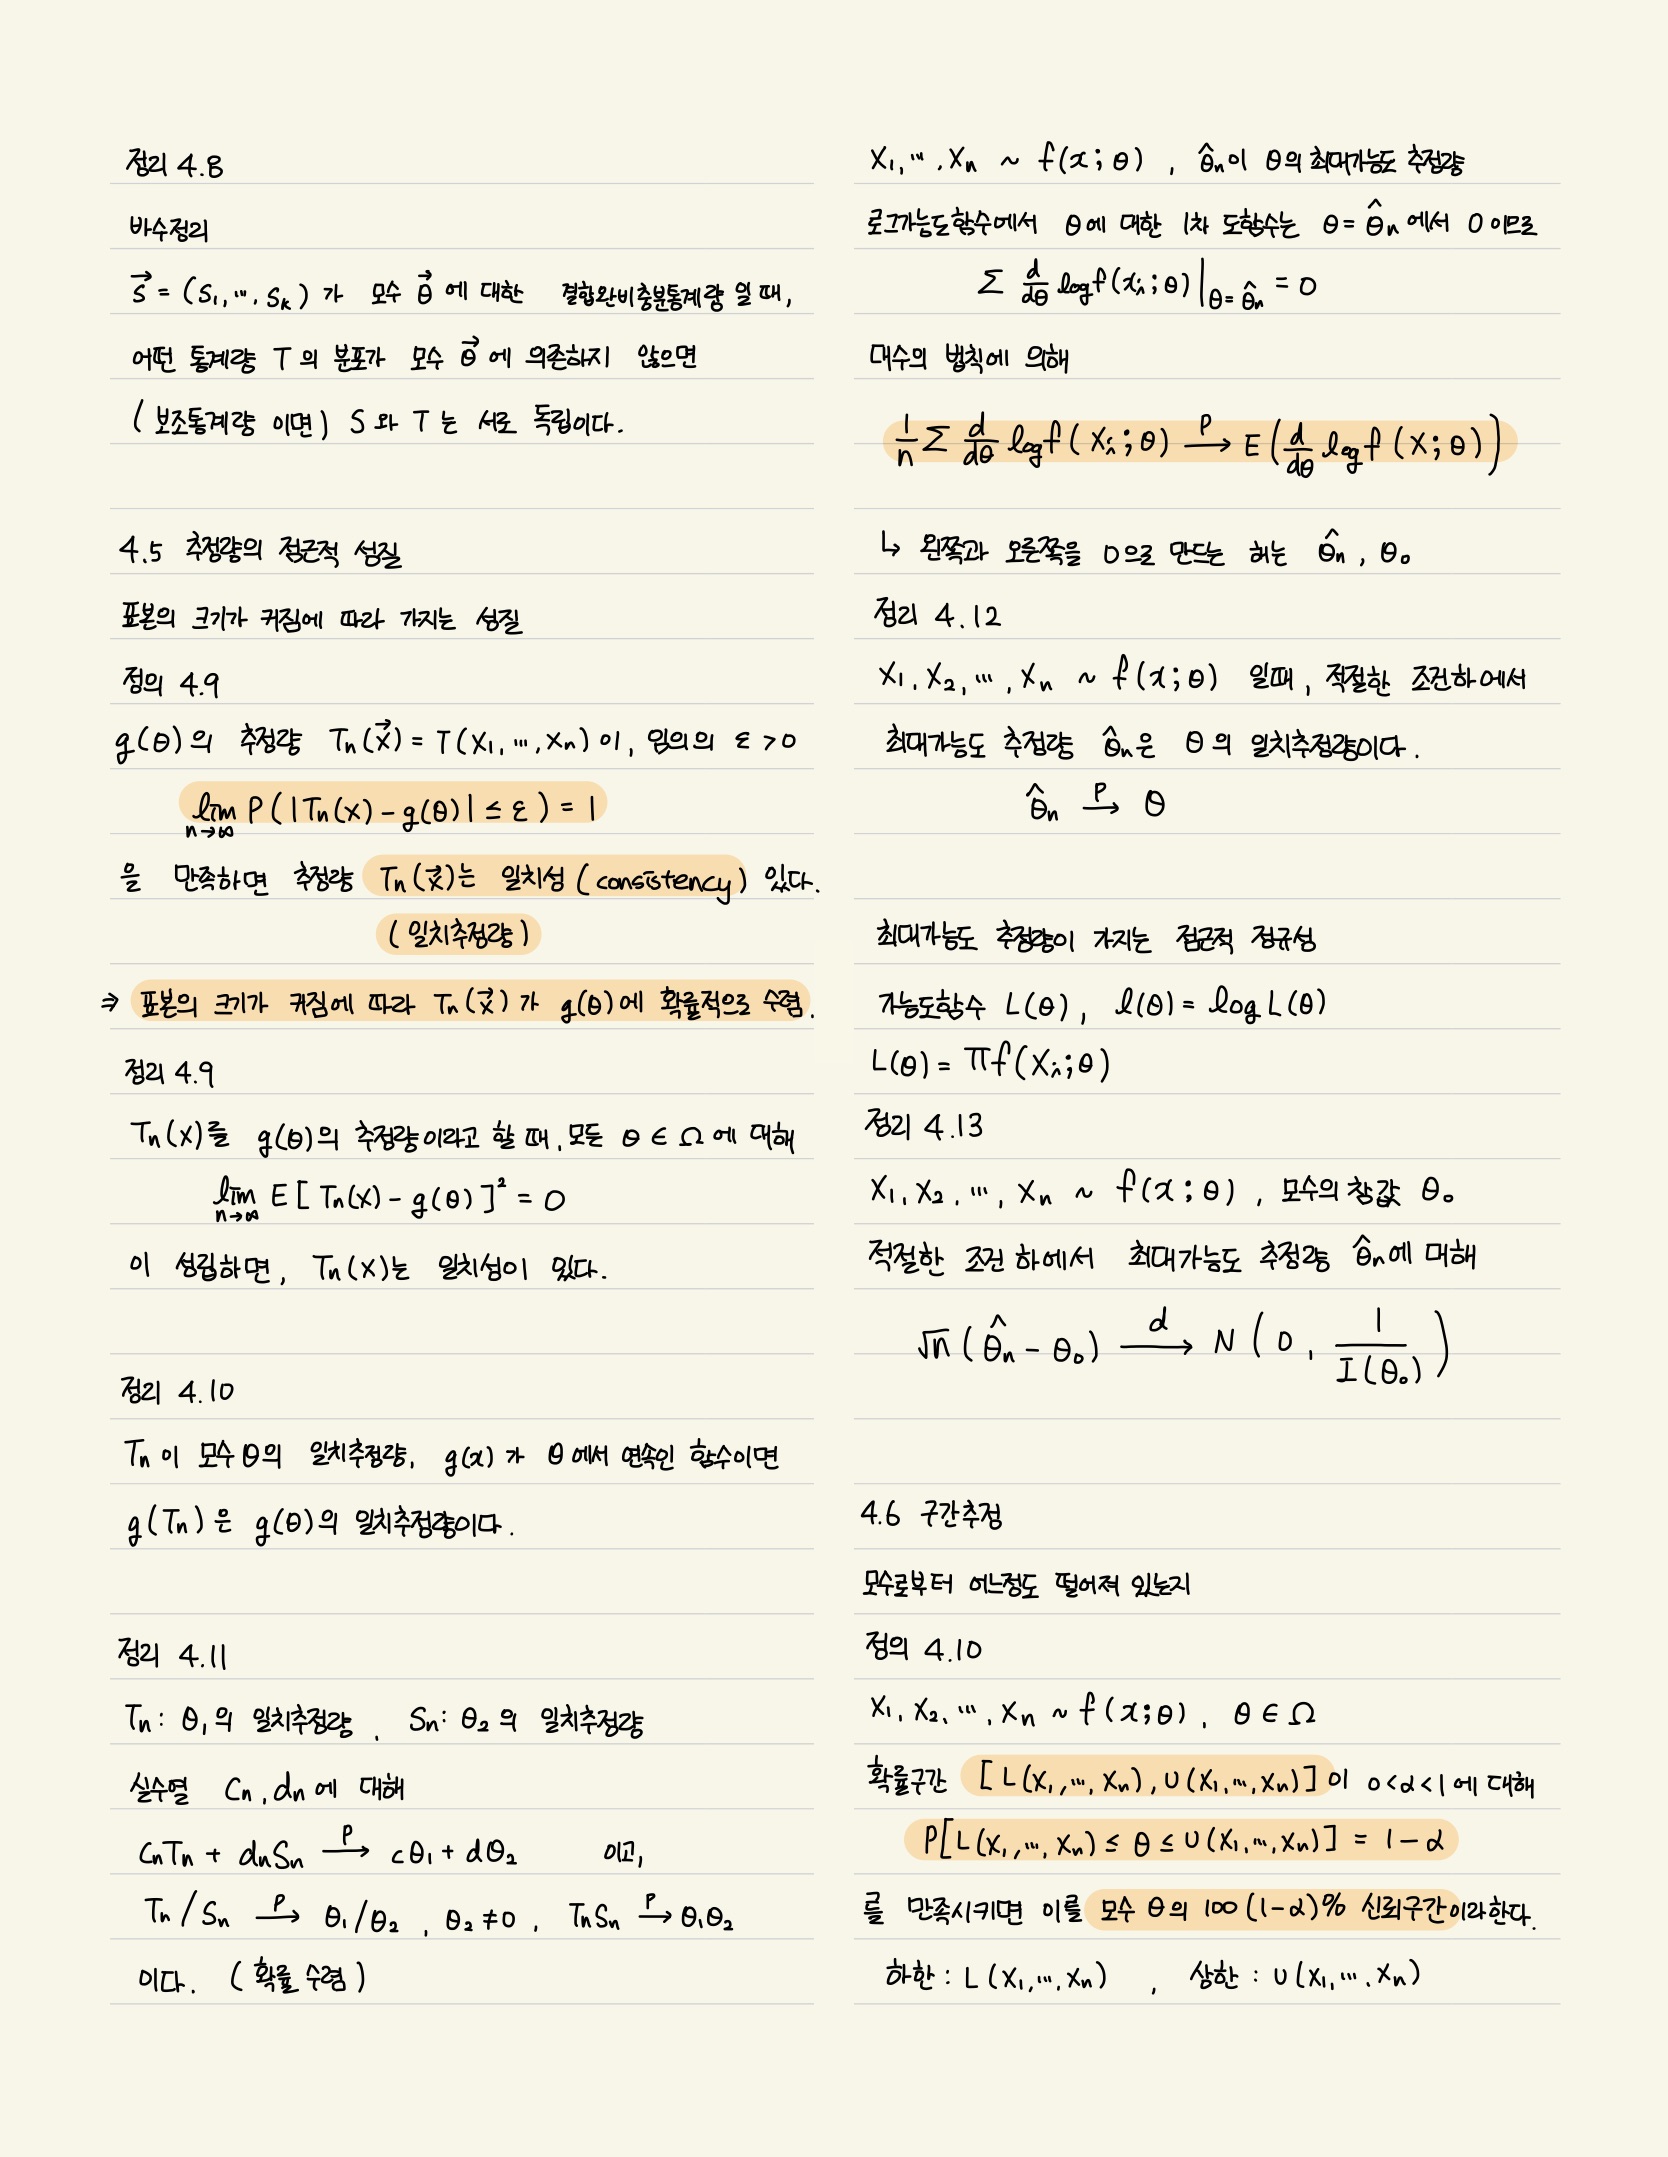 정리 4.8
바수정리
S⃗ = (S₁, ⋯, Sₖ) 가 모수 θ⃗ 에 대한 결합완비충분통계량 일 때,
어떤 통계량 T 의 분포가 모수 θ⃗ 에 의존하지 않으면
(보조통계량 이면) S 와 T 는 서로 독립이다.
4.5 추정량의 점근적 성질
표본의 크기가 커짐에 따라 가지는 성질
정의 4.9
g(θ)의 추정량 Tₙ(x⃗) = T(X₁, ⋯, Xₙ) 이, 임의의 ε > 0
lim n→∞ P(|Tₙ(x) - g(θ)| ≤ ε) = 1
을 만족하면 추정량 Tₙ(x⃗)는 일치성 (consistency) 있다.
(일치추정량)
⇒ 표본의 크기가 커짐에 따라 Tₙ(x⃗) 가 g(θ)에 확률적으로 수렴.
정리 4.9
Tₙ(x)를 g(θ)의 추정량이라고 할 때, 모든 θ ∈ Ω 에 대해
lim n→∞ E[Tₙ(x) - g(θ)]² = 0
이 성립하면, Tₙ(x)는 일치성이 있다.
정리 4.10
Tₙ 이 모수 θ의 일치추정량, g(x) 가 θ에서 연속인 함수이면
g(Tₙ) 은 g(θ)의 일치추정량이다.
정리 4.11
Tₙ: θ₁의 일치추정량, Sₙ: θ₂의 일치추정량
실수열 Cₙ, dₙ에 대해
CₙTₙ + dₙSₙ →ᴾ cθ₁ + dθ₂ 이고,
Tₙ/Sₙ →ᴾ θ₁/θ₂, θ₂ ≠ 0, TₙSₙ →ᴾ θ₁θ₂
이다. (확률 수렴)
X₁, ⋯, Xₙ ~ f(x; θ), θ̂ₙ이 θ의 최대가능도 추정량
로그가능도함수에서 θ에 대한 1차 도함수는 θ = θ̂ₙ에서 0 이므로
Σ d/dθ log f(xᵢ; θ)|θ=θ̂ₙ = 0
대수의 법칙에 의해
1/n Σ d/dθ log f(Xᵢ; θ) →ᴾ E(d/dθ log f(X; θ))
↳ 왼쪽과 오른쪽을 0으로 만드는 해는 θ̂ₙ, θ₀
정리 4.12
X₁, X₂, ⋯, Xₙ ~ f(x; θ) 일때, 적절한 조건하에서
최대가능도 추정량 θ̂ₙ은 θ의 일치추정량이다.
θ̂ₙ →ᴾ θ
최대가능도 추정량이 가지는 점근적 정규성
가능도함수 L(θ), l(θ) = log L(θ)
L(θ) = Πf(Xᵢ; θ)
정리 4.13
X₁, X₂, ⋯, Xₙ ~ f(x; θ), 모수의 참값 θ₀
적절한 조건 하에서 최대가능도 추정량 θ̂ₙ에 대해
√n(θ̂ₙ - θ₀) →ᵈ N(0, 1/I(θ₀))
4.6 구간추정
모수로부터 어느정도 떨어져 있는지
정의 4.10
X₁, X₂, ⋯, Xₙ ~ f(x; θ), θ ∈ Ω
확률구간 [L(X₁, ⋯, Xₙ), U(X₁, ⋯, Xₙ)]이 0 < α < 1 에 대해
P[L(X₁, ⋯, Xₙ) ≤ θ ≤ U(X₁, ⋯, Xₙ)] = 1 - α
를 만족시키면 이를 모수 θ의 100(1-α)% 신뢰구간이라한다.
하한 : L(X₁, ⋯, Xₙ), 상한 : U(X₁, ⋯, Xₙ)